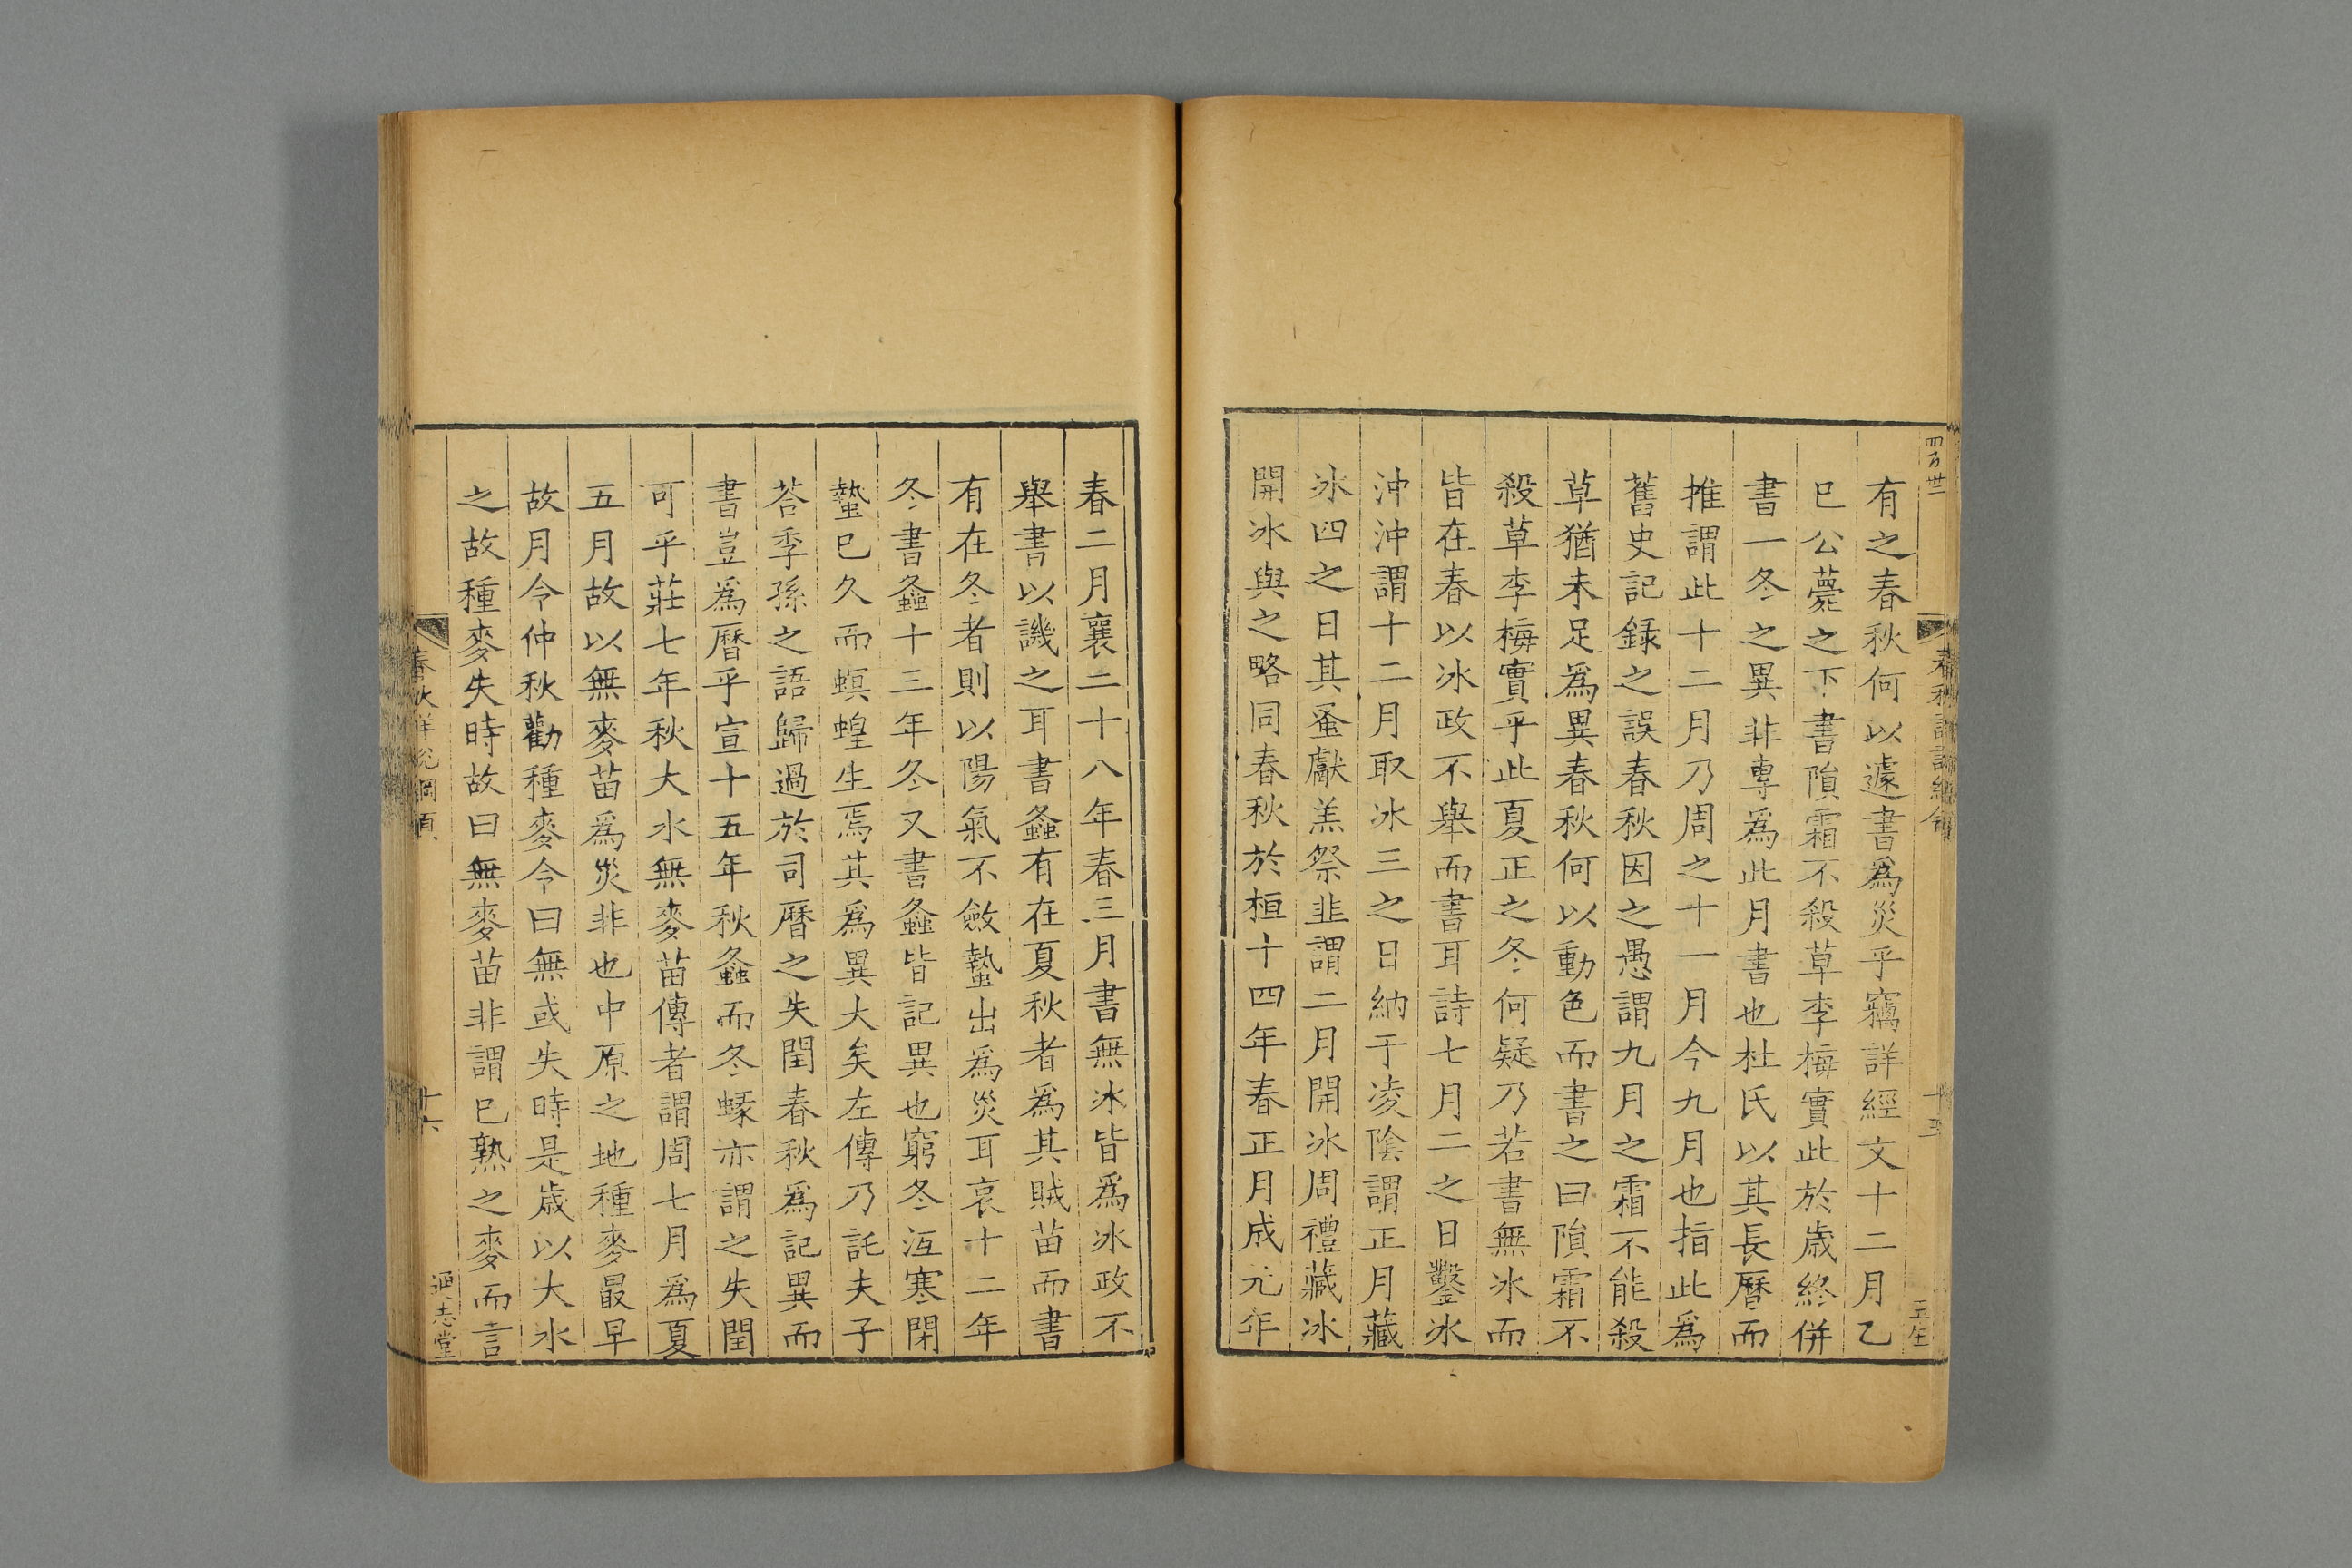 有之春秋何以遽書爲災乎竊詳經文十二月乙
巳公薨之下書隕霜不殺草李梅實此於歳終併
書一冬之異非専爲此月書也杜氏以其長曆而
推謂此十二月乃周之十一月今九月也指此爲
舊史記録之誤春秋因之愚謂九月之霜不能殺
草猶未足爲異春秋何以動色而書之曰隕霜不
殺草李梅實乎此夏正之冬何疑乃若書無冰而
皆在春以冰政不舉而書耳詩七月二之日鑿冰
沖沖謂十二月取冰三之日納于凌陰謂正月藏
冰四之日其蚤獻羔祭韭謂二月開冰周禮藏冰
開冰與之略同春秋於桓十四年春正月成元年
春二月襄二十八年春三月書無冰皆爲冰政不
舉書以譏之耳書螽有在夏秋者爲其賊苗而書
有在冬者則以陽氣不斂蟄出爲災耳哀十二年
冬書螽十三年冬又書螽皆記異也窮冬沍寒閉
蟄巳久而螟蝗生焉其爲異大矣左傳乃託夫子
荅季孫之語歸過於司曆之失閏春秋爲記異而
書豈爲曆乎宣十五年秋螽而冬蝝亦謂之失閏
可乎莊七年秋大水無麥苗傳者謂周七月爲夏
五月故以無麥苗爲災非也中原之地種麥最早
故月令仲秋勸種麥令曰無或失時是歳以大水
之故種麥失時故曰無麥苗非謂巳熟之麥而言
十六
通志堂